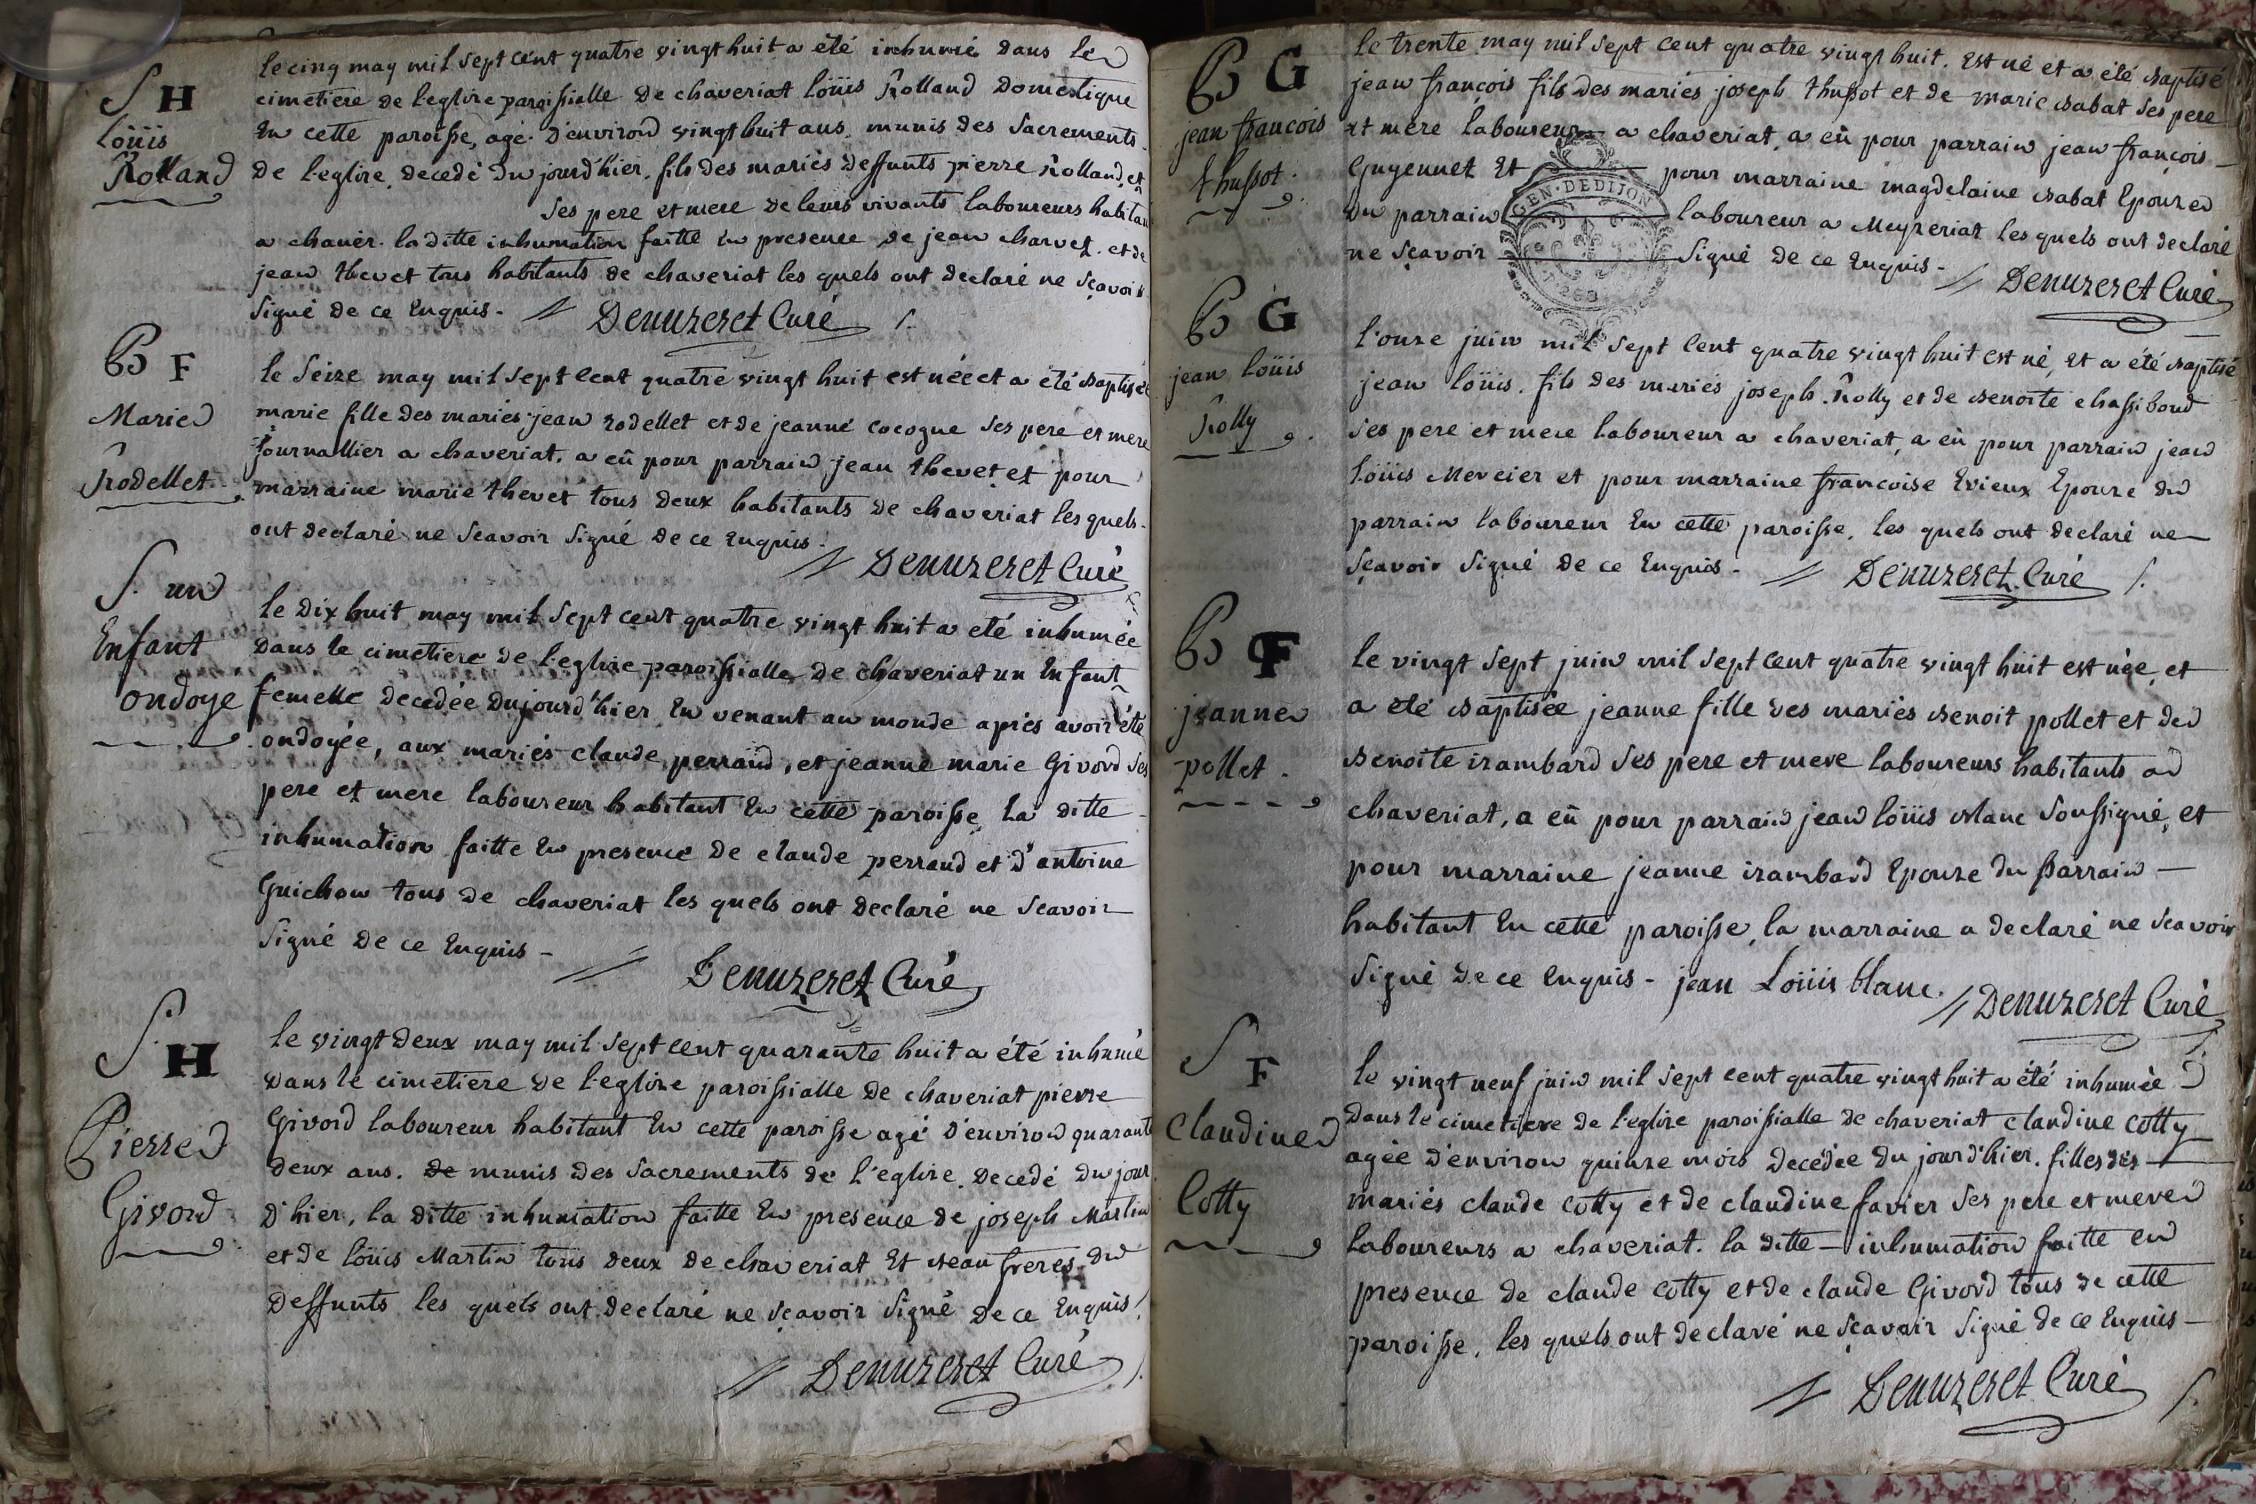 S H
Loüis
Rolland
le cinq may mil sept cent quatre vingt huit a été inhumé dans le
cimetiere de l'eglise paroissialle de chaveriat loüis Rolland Domestique
En cette paroisse, agé d'environ vingt huit ans, munis des Sacrements
de l'eglise, decedé du jourd'hier, fils des mariés deffunts pierre Rolland, et
ses pere et mere de leurs vivants laboureurs habitan
a chaver. la ditte inhumation faitte en presence de jean charvet. et de
jean thevet tous habitants de chaveriat les quels ont declaré ne sçavoir
Signé de ce Enquis - // Denuzeret Curé
B F
Marie
Rodellet
le Seize may mil sept cent quatre vingt huit est née et a été baptisée
marie fille des mariés jean rodellet et de jeanne cocogne ses pere et mere
journallier a chaveriat, a eû pour parrain jean thevet et pour
marraine marie thevet tous deux habitants de chaveriat les quels
ont declaré ne Scavoir Signé de ce enquis.
// Denuzeret Curé
S. un
Enfant
ondoye
le Dix huit may mil Sept cent quatre vingt huit a eté inhumée
Dans le cimetiere de l'eglise paroissialle de chaveriat un Enfant
femelle decedée dujourd'hier En venant au monde aprés avoir été
ondoyée, aux mariés claude perraud, et jeanne marie Givord Ses
pere et mere laboureur habitant En cette paroisse la ditte
inhumation faitte En presence de claude perraud et d'antoine
Guichon tous de chaveriat les quels ont declaré ne Scavoir
Signé de ce Enquis -
// Denuzeret Curé
S. H
Pierre
Givord
le vingt deux may mil sept cent quarante huit a été inhumé
Dans le cimetiere de l'eglise paroissialle de chaveriat pierre
Givord laboureur habitant En cette paroisse agé d'environ quarante
deux ans. de munis des Sacrements de l'eglise. Decedé Du jour
D'hier, la ditte inhumation faitte En presence de joseph Martin
et de loüis Martin tous deux de chaveriat Et beau freres du
Deffunts les quels ont declaré ne sçavoir Signé de ce Enquis
// Denuzeret Curé
B G
jean francois
thussot.
le trente may mil Sept Cent quatre vingt huit. Est né et a été baptisé
jean françois fils des mariés joseph thussot et de marie babat ses pere
et mere laboureur a chaveriat, a eû pour parrain jean françois
Guyennet Et pour marraine magdelaine babat Epouse
du parrain laboureur a Meyzeriat les quels ont declaré
ne sçavoir Signé de ce Enquis - // Denuzeret Curé
GEN. DE DIJON
B G
jean loüis
Rolly
l'onze juin mil Sept Cent quatre vingt huit est né, et a été baptisé
jean loüis. fils des mariés joseph Rolly et de benoite chassiboud
Ses pere et mere laboureur a chaveriat, a eû pour parrain jean
loüis Mercier et pour marraine francoise Evieux Epouse du
parrain laboureur En cette paroisse, les quels ont declaré ne
Sçavoir Signé de ce Enquis - // Denuzeret Curé
B F
jeanne
pollet.
le vingt Sept juin mil Sept cent quatre vingt huit est née, et
a eté baptisée jeanne fille des mariés benoit pollet et de
benoite irambard Ses pere et mere laboureurs habitants a
chaveriat, a eû pour parrain jean loüis blanc Soussigné, et
pour marraine jeanne irambard Epouse du parrain
habitant En cette paroisse, la marraine a declaré ne Scavoir
Signé de ce enquis - jean Loüis blanc. // Denuzeret Curé
S F
Claudine
Cotty
le vingt neuf juin mil Sept cent quatre vingt huit a été inhumée
Dans le cimetiere de l'eglise paroissialle de chaveriat claudine cotty
agée d'environ quinze mois decédée du jourd'hier. filles des
mariés claude cotty et de claudine favier Ses pere et mere
laboureurs a chaveriat. la ditte inhumation faitte en
presence de claude cotty et de claude Givord tous de cette
paroisse. les quels ont declaré ne sçavoir Signé de ce Enquis -
// Denuzeret Curé